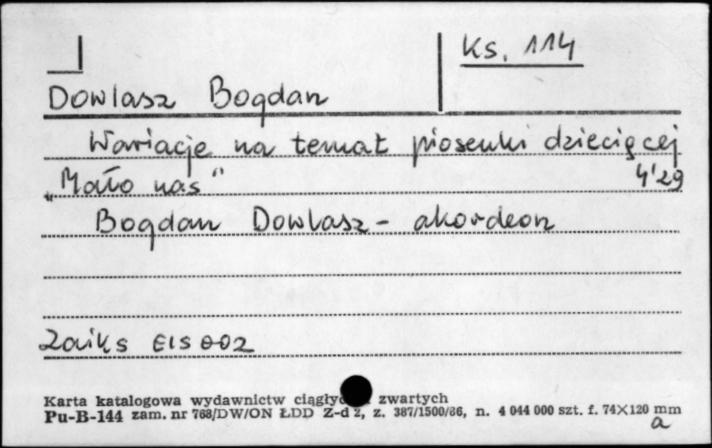 Ks. 114
Dowlasz Bogdan
Wariacje na temat piosenki dziecięcej
„Mało nas" 4'29
Bogdan Dowlasz - akordeon
Zaiks EIS 002
Karta katalogowa wydawnictw zwartych
Pu-B-144 zam. nr 768/DW/ON ŁDD Z-d 2, z. 387/1500/86, n. 4 044 000 szt. f. 74X120 mm
a